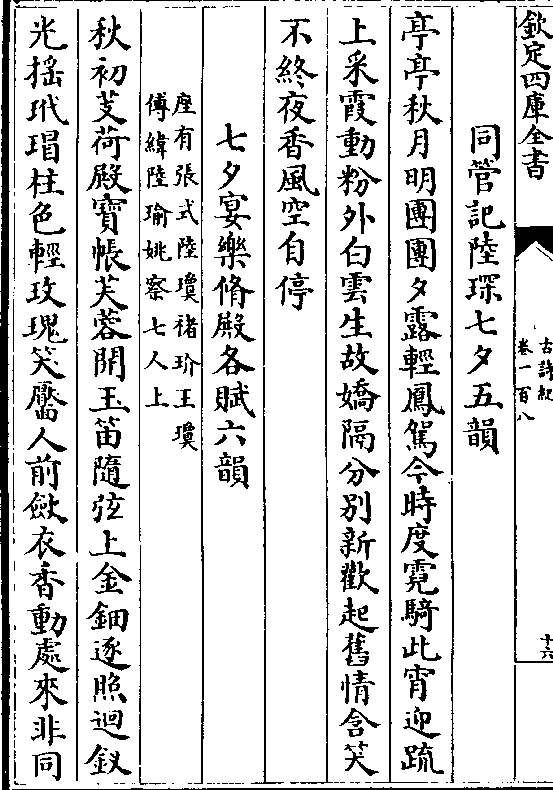 欽定四庫全書
古詩紀
卷一百八
十六
同管記陸琛七夕五韻
亭亭秋月明團團夕露輕鳳駕今時度霓騎此宵迎䟽
上采霞動粉外白雲生故嬌隔分别新歡起舊情含笑
不終夜香風空自停
七夕宴樂脩殿各賦六韻
座有張式陸瓊褚玠王瓊
傅緯陸瑜姚察七人上
秋初芰荷殿寳帳芙蓉開玉笛隨弦上金鈿逐照迴釵
光摇玳瑁柱色輕玫瑰笑靨人前斂衣香動處來非同